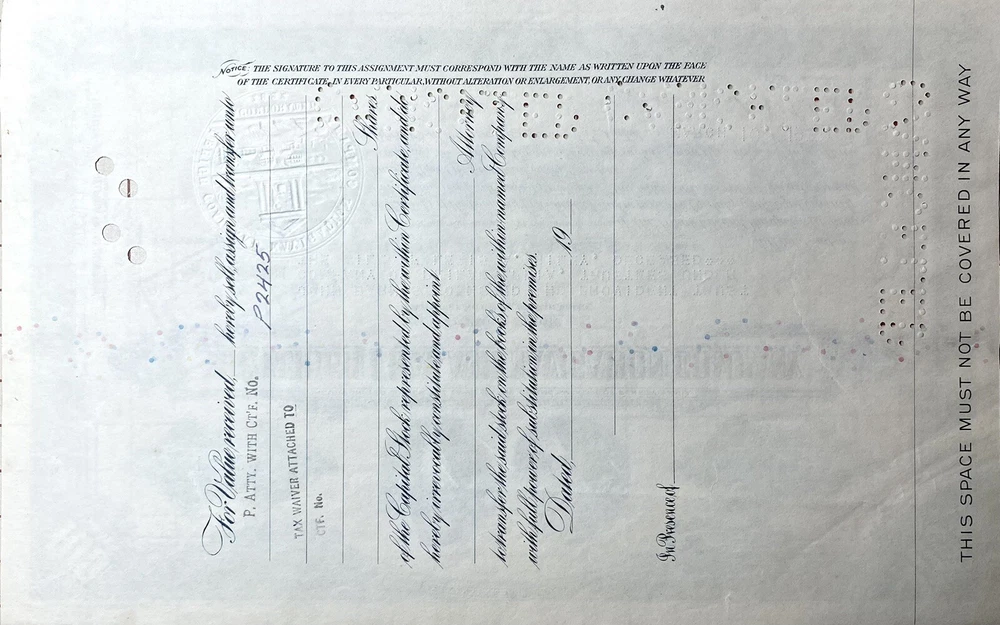 NOTICE: THE SIGNATURE TO THIS ASSIGNMENT MUST CORRESPOND WITH THE NAME AS WRITTEN UPON THE FACE
OF THE CERTIFICATE, IN EVERY PARTICULAR, WITHOUT ALTERATION OR ENLARGEMENT, OR ANY CHANGE WHATEVER
For Value received, hereby sell, assign and transfer unto
P. ATTY. WITH CTF. NO. P2425
TAX WAIVER ATTACHED TO
CTF. No.
Shares
of the Capital Stock represented by the within Certificate, and do
hereby irrevocably constitute and appoint
Attorney
to transfer the said stock on the books of the within named Company
with full power of substitution in the premises.
Dated, 19
In Presence of
THIS SPACE MUST NOT BE COVERED IN ANY WAY